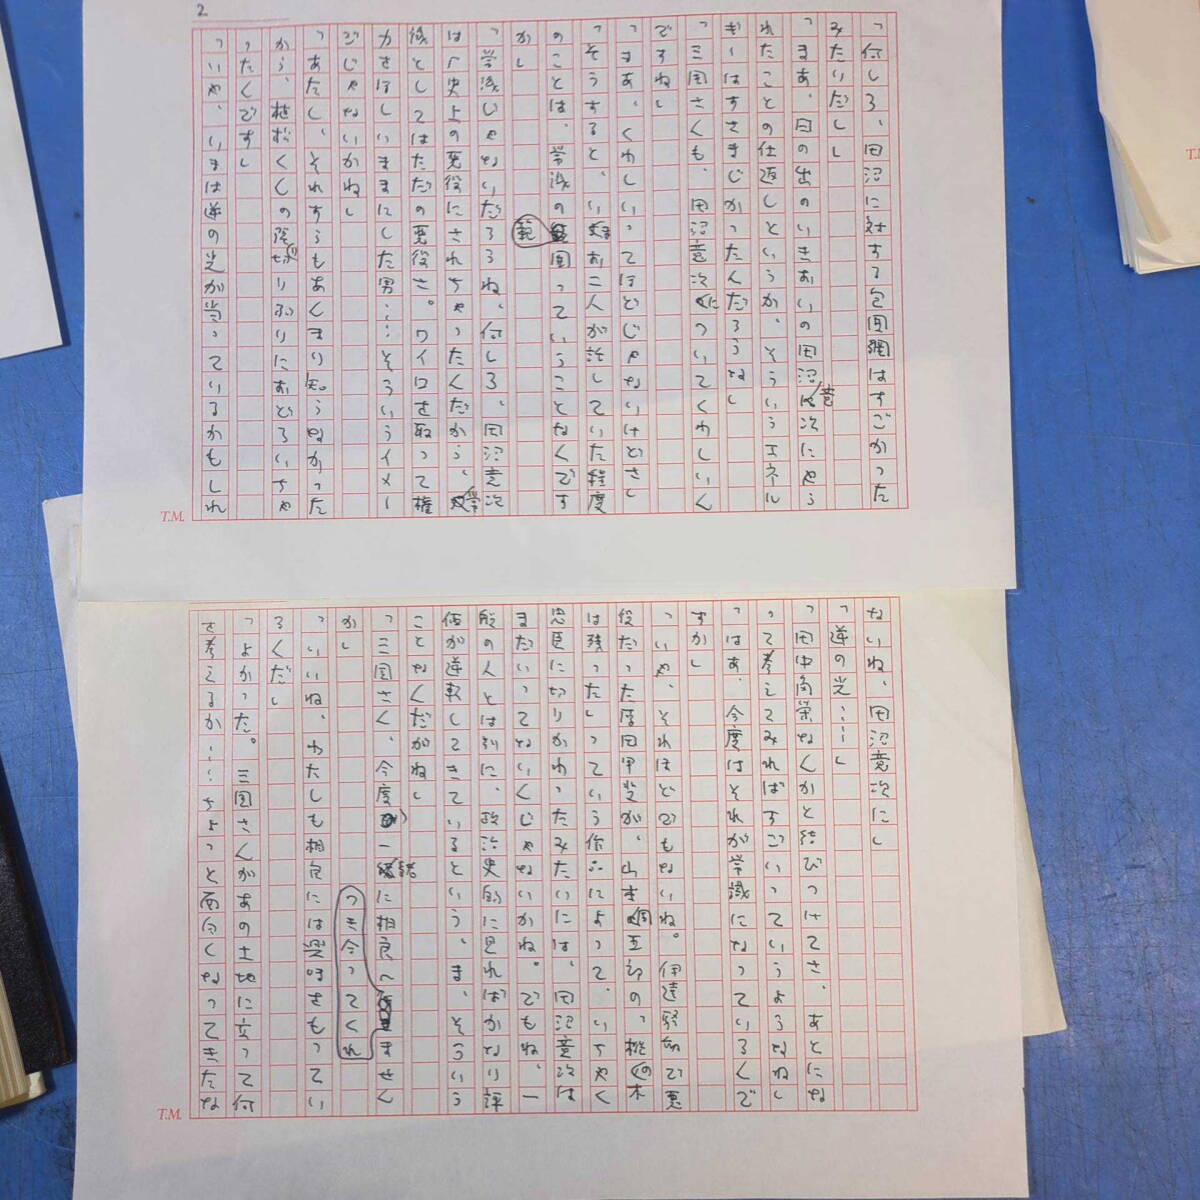 2
「何しろ、田沼に対する包囲網はすごかった
みたいだし」
「まあ、日の出のいきおいの田沼意次にやら
れたことの仕返しというか、そういうエネル
ギーはすさまじかったんだろうな」
「三国さんも、田沼意次についてくわしいん
ですね」
「まあ、くわしいってほどじゃないけどさ」
「そうすると、いまお二人が話していた程度
のことは、常識の範囲っていうことなんです
か」
「常識じゃないだろうね、何しろ、田沼意次
は歴史上の悪役にされちゃったんだから、常
識としてはただの悪役さ。ワイロを取って権
力をほしいままにした男……そういうイメー
ジじゃないかね」
「あたし、それすらもあんまり知らなかった
から、桂木くんの張り切りぶりにおどろいちゃ
ったんです」
「いや、いまは逆の光が当っているかもしれ
T.M.
ないね、田沼意次に」
「逆の光……」
「田中角栄なんかと結びつけてさ、あとにな
って考えてみればすごいっていうようなね」
「はあ、今度はそれが常識になっているんで
すか」
「いや、それほどでもないね。伊達騒動で悪
役だった原田甲斐が、山本周五郎の『樅の木
は残った』っていう作品によって、いちやく
忠臣に切りかわったみたいには、田沼意次は
まだいってないんじゃないかね。でもね、一
般の人とは別に、政治史的に見ればかなり評
価が逆転してきているという、ま、そういう
ことなんだがね」
「三国さん、今度一緒に相良へつき合ってくれませんか」
「いいね、わたしも相良には興味をもってい
るんだ」
「よかった。三国さんがあの土地に立って何
を考えるか……ちょっと面白くなってきたな
T.M.